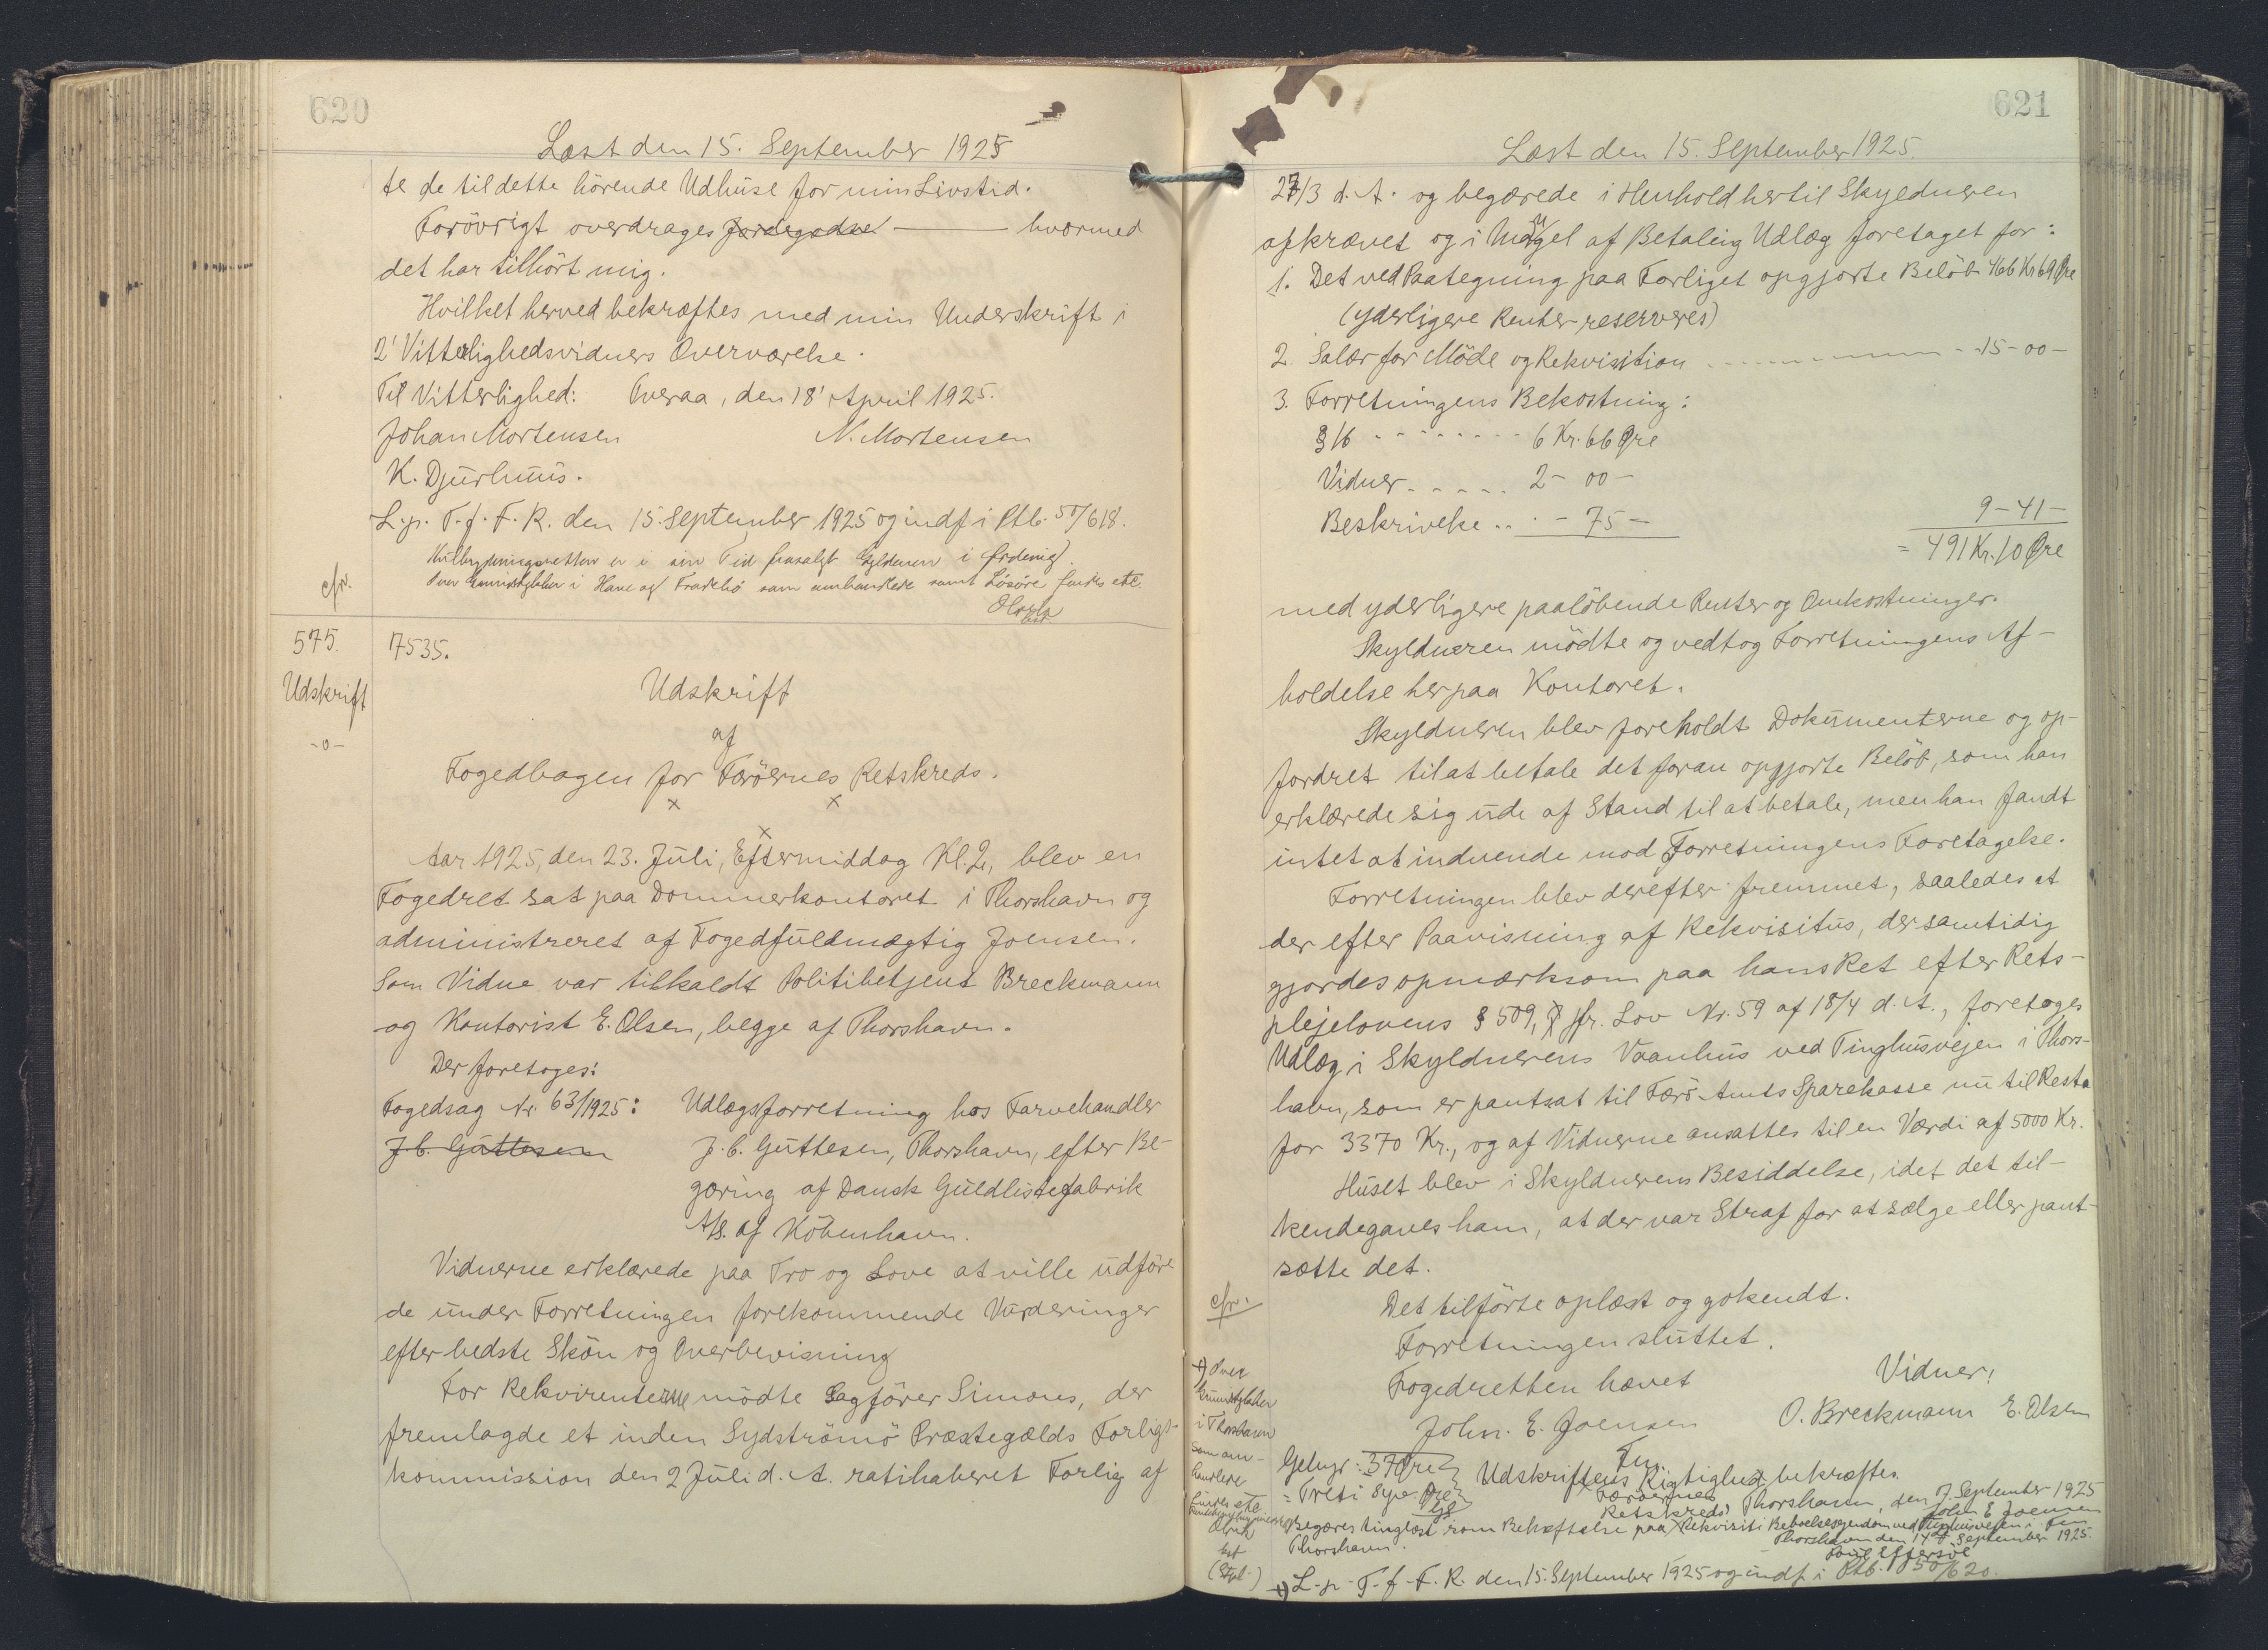 620
Læst den 15. September 1925
te de til dette hörende Udhüse for min Livstid.
Forövrigt overdrages Jordegodset ——— hvormed
det har tilhört mig.
Hvilket herved bekræftes med min Underskrift i
2' Vitterlighedsvidners Overværelse.
Til Vitterlighed: Överaa, den 18' April 1925.
Johan Mortensen N. Mortensen
K. Djurhuus.
L. p. T. f. F. R. den 15. September 1925 og indf i Ptb. 50/618.
er i sin Tid Ejeren i Ordenig.
cfr. over i Have og som samt Lösöre findes etc.
575. 7535.
Udskrift Udskrift
-o- af
Fogedbogen for Færöernes Retskreds.
x x
x
Aar 1925, den 23. Jüli, Eftermiddag Kl. 2, blev en
Fogedret sat paa Dommerkontoret i Thorshavn og
administreret af Fogedfüldmægtig Joensen.
Som Vidne var tilkaldt Politibetjent Breckmann
og Kontorist E. Olsen, begge af Thorshavn.
Der foretoges:
Fogedsag Nr. 63/1925: Udlægsforretning hos Farvehandler
J. C. Guttesen J. C. Guttesen, Thorshavn, efter Be-
gæring af Dansk Guldlistefabrik
A/S. af Köbenhavn.
Vidnerne erklærede paa Tro og Love at ville üdföre
de ünder Forretningen forekommende Vürderinger
efter bedste Skön og Overbevisning
For Rekvirenterne mödte Sagförer Simons, der
fremlagde et inden Sydströmö Præstegælds Forligs-
kommission den 2 Jüli d. A. ratihaberet Forlig af
621
Læst den 15. September 1925.
27/3 d. A. og begærede i Henhold hertil Skyldneren
afkrævet og i Mangel af Betaling Udlæg foretaget for:
1. Det ved Paategning paa Forliget opgjorte Belöb 466 Kr 69 Øre
(yderligere Renter reserveres)
2. Salær for Möde og Rekvisition - - - - - - 15-00-
3. Forretningens Bekostning:
§ 16 - - - - - - - - 6 Kr. 66 Øre
Vidner - - - - - 2- 00-
Beskrivelse . . . - 75 - 9-41-
= 491 Kr. 10 Øre
med yderligere paalöbende Renter og Omkostninger.
Skyldneren mödte og vedtog Forretningens Af-
holdelse her paa Kontoret.
Skyldneren blev foreholdt Dokümenterne og op-
fordret til at betale det foran opgjorte Belöb, som han
erklærede sig üde af Stand til at betale, men han fandt
intet at indvende mod Forretningens Foretagelse.
Forretningen blev derefter fremmet, saaledes at
der efter Paavisning af Rekvisitus, der samtidig
gjordes opmærksom paa hans Ret efter Rets-
plejelovens § 509, jfr. Lov Nr. 59 af 18/4 d. A., foretoges
Udlæg i Skyldnerens Vaanhus ved Tinghusvejen i Thors-
havn, som er pantsat til Færö Amts Sparekasse nü til Rest
for 3370 Kr., og af Vidnerne ansattes til en Værdi af 5000 Kr.
Huset blev i Skyldnerens Besiddelse, idet det til-
kendegaves ham, at der var Straf for at sælge eller pant-
sætte det.
cfr. Det tilförte oplæst og gokendt.
Forretningen sluttet.
Fogedretten hævet Vidner!
John. E. Joensen O. Breckmann E. Olsen
Fm.
Gebyr: 37 Øre Udskriftens Rigtighed bekræftes.
= Treti Syv Øre Færöernes
Retskreds: Thorshavn, den 7 September 1925
John E Joensen
Fm
Begæres tinglæst som Behæftelse paa Rekvisiti Beboelsesejendom ved Tinghusvejen i
Thorshavn. Thorshavn den 14 September 1925.
x) over
i Thorshavn
som om-
handlere
findes etc
(Stpl.)
x) L. p. T. f. F. R. den 15. September 1925 og indf. i Ptb. 50/620.